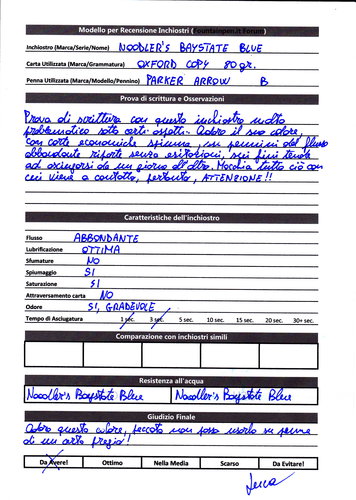 Modello per Recensione Inchiostri (Fountainpen.it Forum)
Inchiostro (Marca/Serie/Nome) NOODLER'S BAYSTATE BLUE
Carta Utilizzata (Marca/Grammatura) OXFORD COPY 80 gr.
Penna Utilizzata (Marca/Modello/Pennino) PARKER ARROW B
Prova di scrittura e Osservazioni
Prova di scrittura con questo inchiostro molto
problematico sotto certi aspetti. Adoro il suo odore,
con carte economiche spiuma, su pennini dal flusso
abbondante riparte senza esitazioni, sui fini tende
ad asciugarsi da un giorno all'altro. Macchia tutto ciò con
cui viene a contatto, pertanto, ATTENZIONE!!
Caratteristiche dell'inchiostro
Flusso ABBONDANTE
Lubrificazione OTTIMA
Sfumature NO
Spiumaggio SI
Saturazione SI
Attraversamento carta NO
Odore SI, GRADEVOLE
Tempo di Asciugatura 1 sec. 3 sec. 5 sec. 10 sec. 15 sec. 20 sec. 30+ sec.
Comparazione con inchiostri simili
Resistenza all'acqua
Noodler's Baystate Blue Noodler's Baystate Blue
Giudizio Finale
Adoro questo colore, peccato non possa usarlo su penne
di un certo pregio!
Da Avere! Ottimo Nella Media Scarso Da Evitare!
Luca